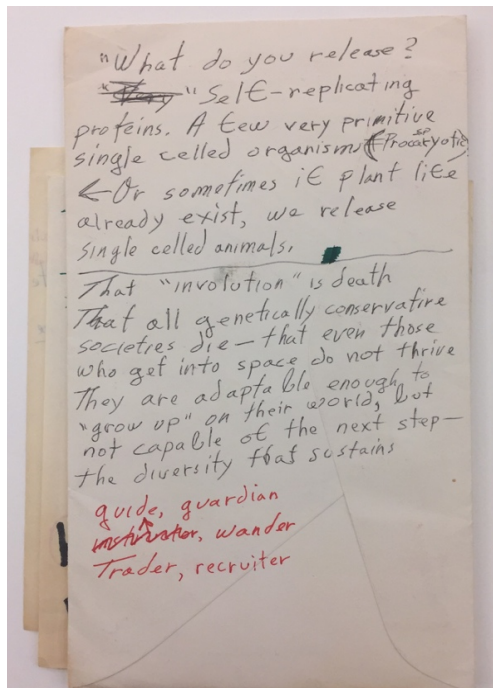 "What do you release?
"Self-replicating
proteins. A few very primitive
single celled organisms (Procaryotic)
sp
← Or somotimes if plant life
already exist, we release
single celled animals.
That "involution" is death
That all genetically conservative
societies die — that even those
who get into space do not thrive
They are adaptable enough to
"grow up" on their world, but
not capable of the next step —
the diversity that sustains
guide, guardian
wander
Trader, recruiter